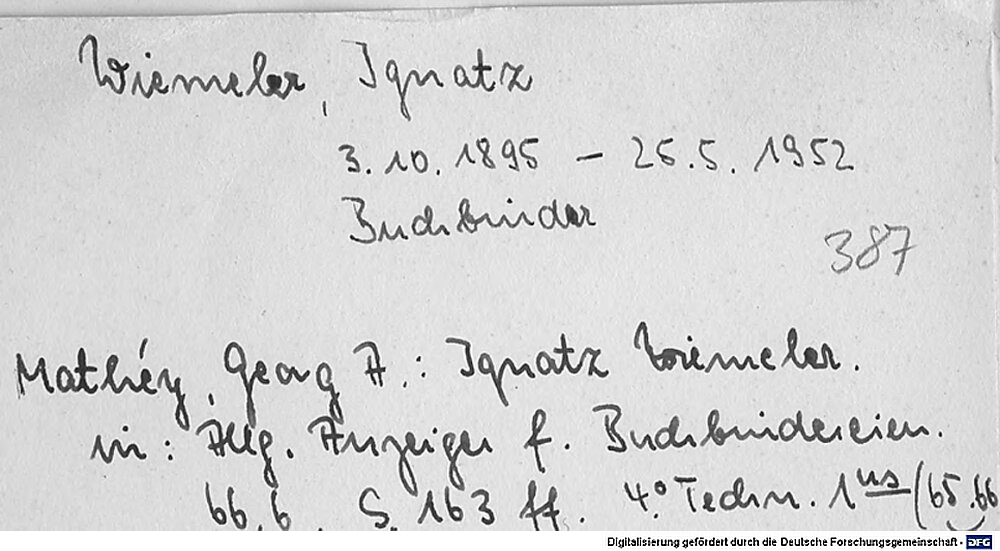 Wiemeler, Ignatz
3.10.1895 - 25.5.1952
Buchbinder
387
Mathéy, Georg A.: Ignatz Wiemeler.
in: Allg. Anzeiger f. Buchbindereien.
66.6. S. 163 ff. 4° Techn. 1 us (65.66
Digitalisierung gefördert durch die Deutsche Forschungsgemeinschaft - DFG